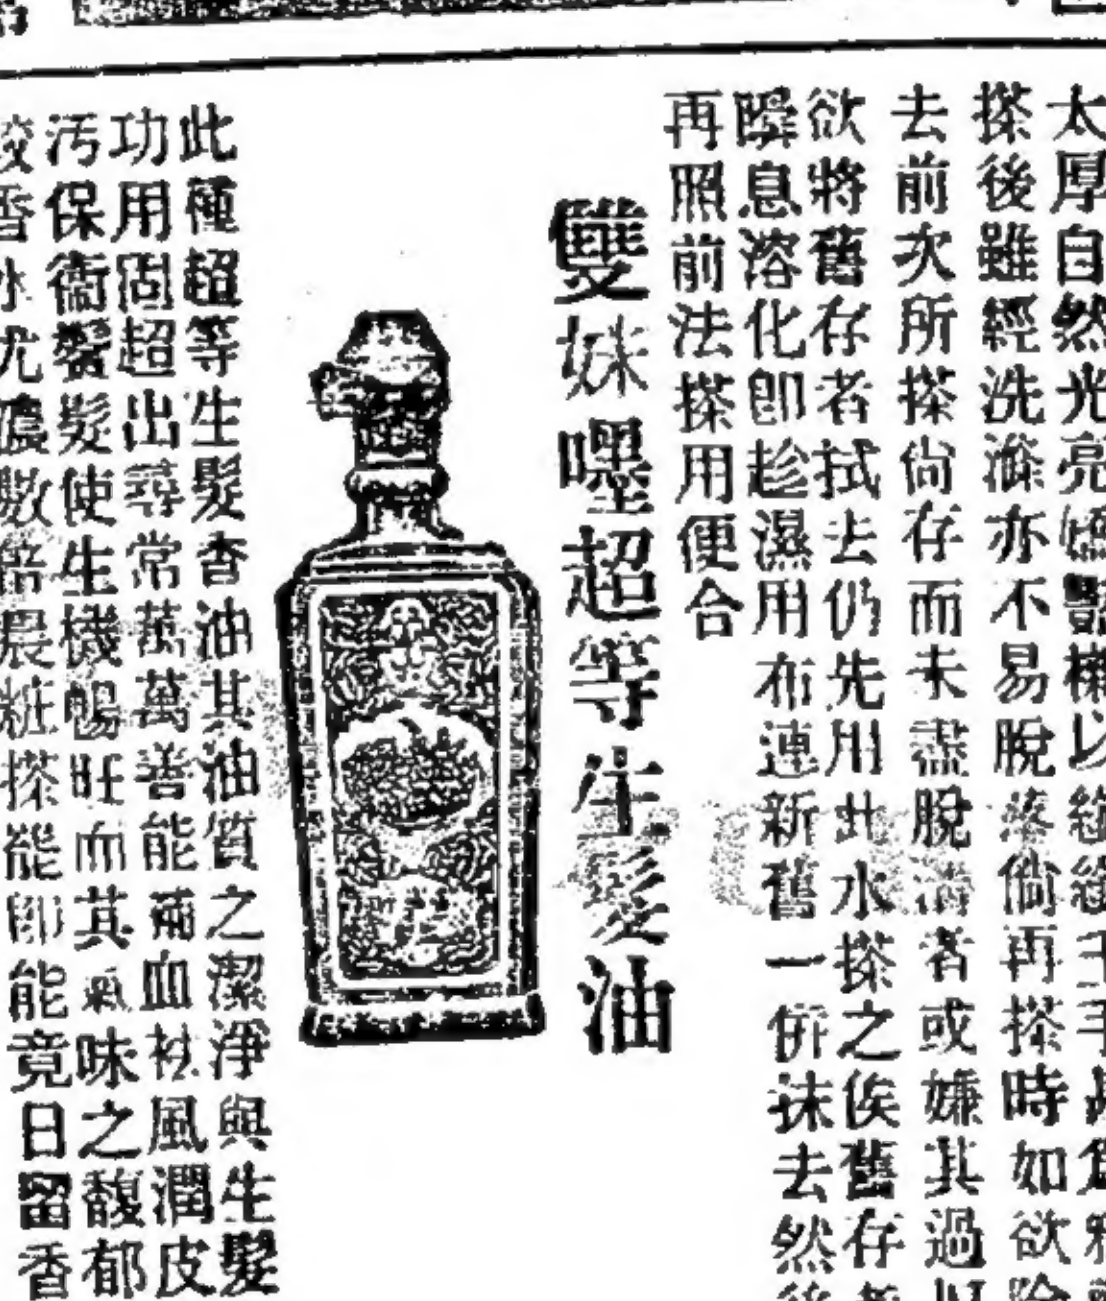 太厚自然光亮
搽後雖經洗滌亦不易脫落倘再搽時如欲除
去前次所搽尙存而未盡脫淸者或嫌其過
欲將舊存者拭去仍先用此水搽之俟舊存者
瞬息溶化卽趁濕用布連新舊一倂抹去然後
再照前法搽用便合
雙妹嚜超等生髮油
此種超等生髮香油其油質之潔淨與生髮
功用固超出尋常萬萬善能補血袪風潤皮
汚保衞鬢髮使生機暢旺而其氣味之馥郁
較香水尤濃數倍晨粧搽能卽能竟日留香